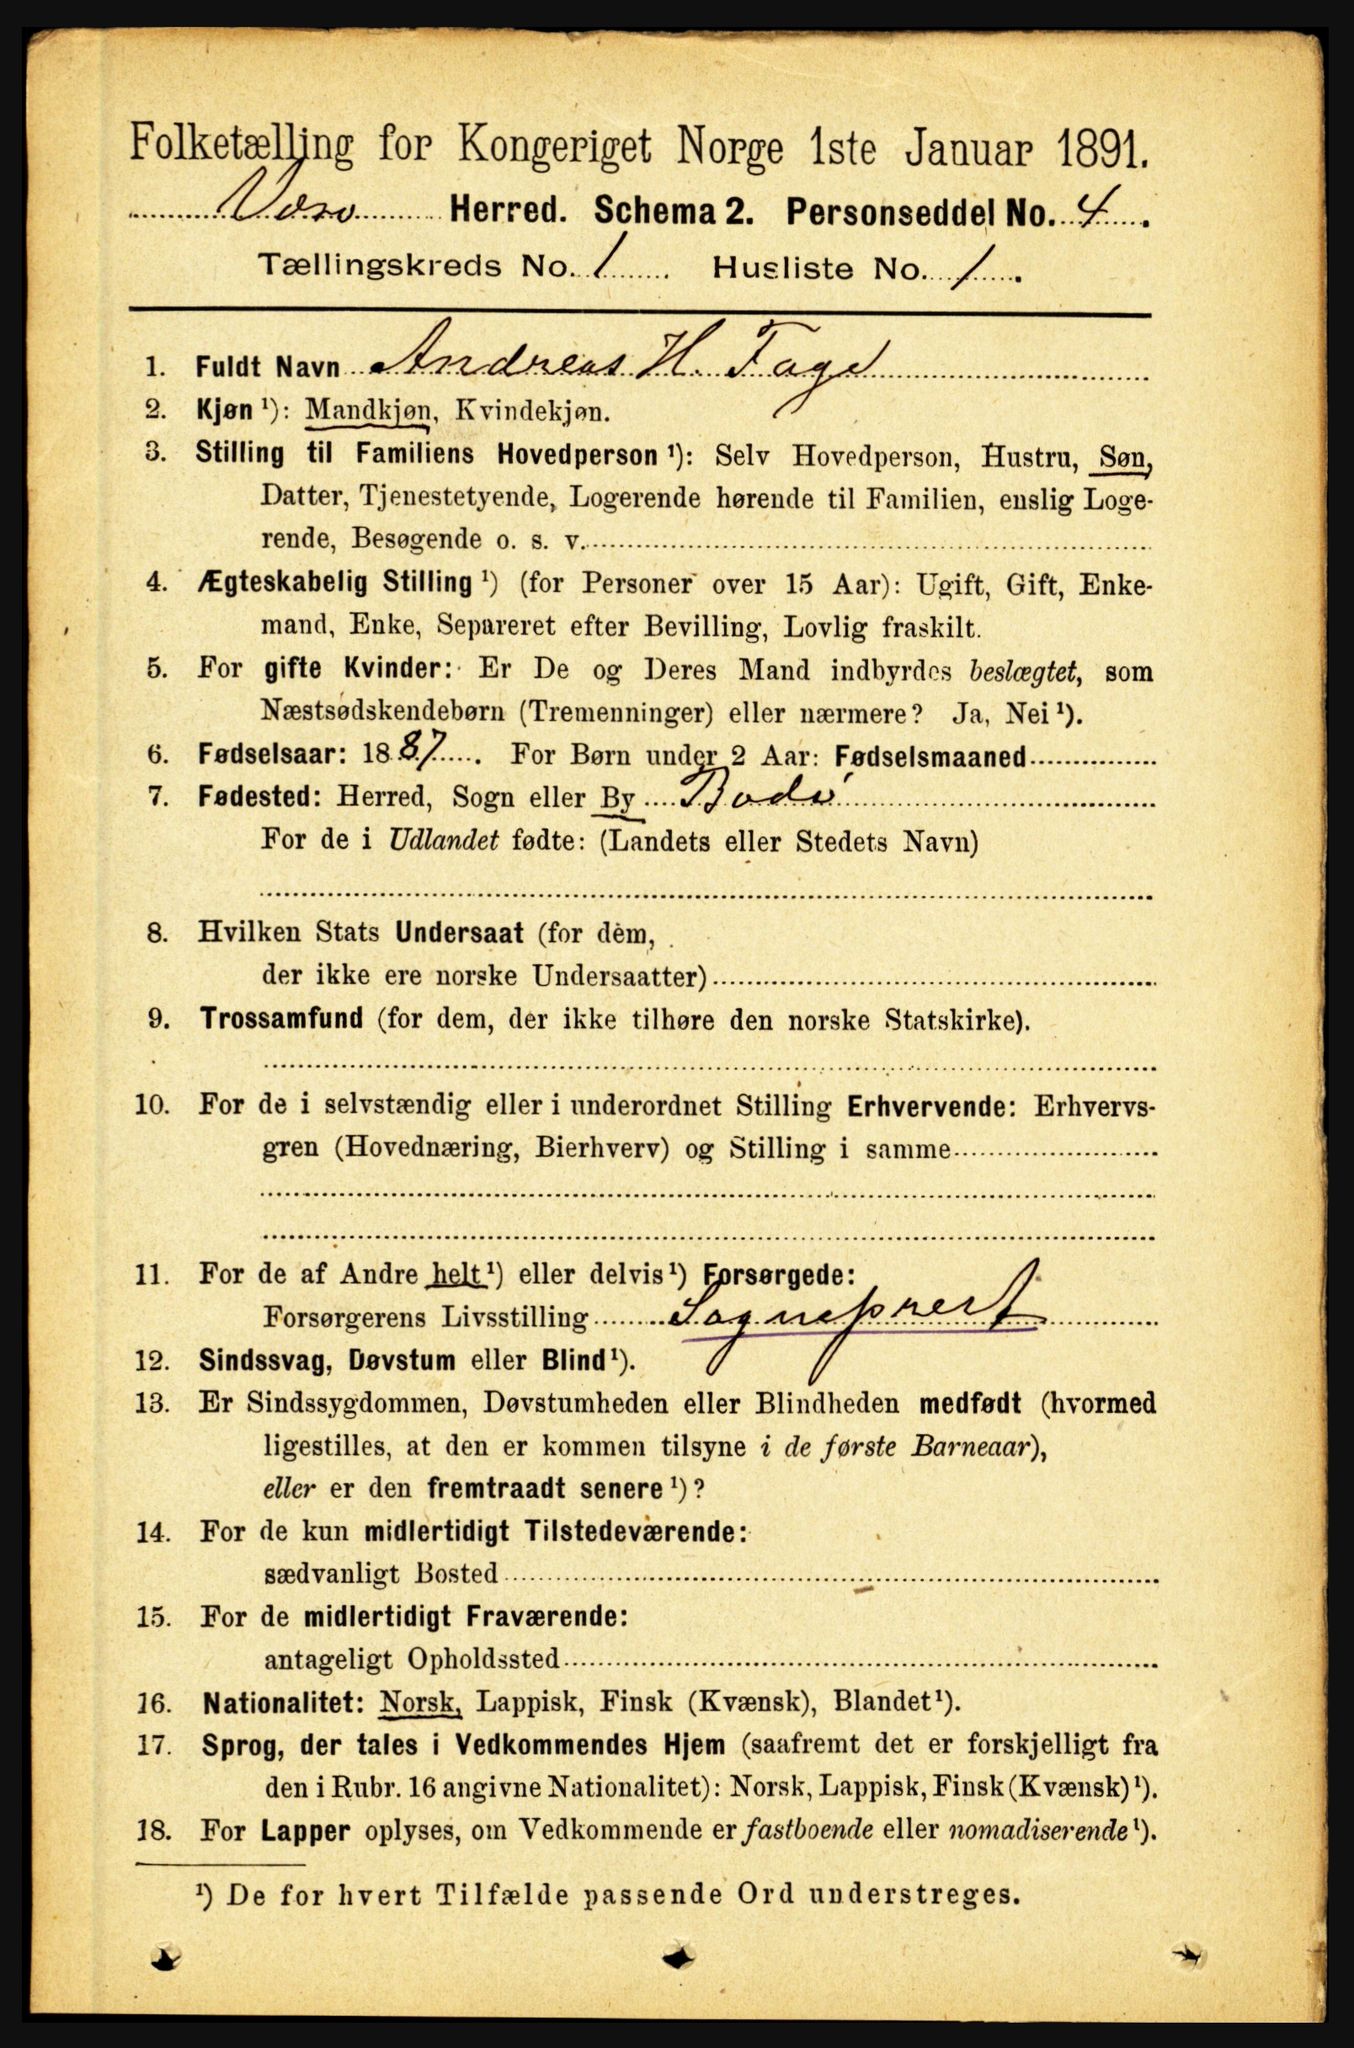 Folketælling for Kongeriget Norge 1ste Januar 1891.
Værø Herred. Schema 2. Personseddel No. 4.
Tællingskreds No. 1 Husliste No. 1.
1. Fuldt Navn Andreas H. Fage
2. Kjøn ¹): Mandkjøn, Kvindekjøn.
3. Stilling til Familiens Hovedperson ¹): Selv Hovedperson, Hustru, Søn,
Datter, Tjenestetyende, Logerende hørende til Familien, enslig Loge-
rende, Besøgende o. s. v.
4. Ægteskabelig Stilling ¹) (for Personer over 15 Aar): Ugift, Gift, Enke-
mand, Enke, Separeret efter Bevilling, Lovlig fraskilt.
5. For gifte Kvinder: Er De og Deres Mand indbyrdes beslægtet, som
Næstsødskendebørn (Tremenninger) eller nærmere? Ja, Nei ¹).
6. Fødselsaar: 1887. For Børn under 2 Aar: Fødselsmaaned
7. Fødested: Herred, Sogn eller By Bodø
For de i Udlandet fødte: (Landets eller Stedets Navn)
8. Hvilken Stats Undersaat (for dem,
der ikke ere norske Undersaatter)
9. Trossamfund (for dem, der ikke tilhøre den norske Statskirke).
10. For de i selvstændig eller i underordnet Stilling Erhvervende: Erhvervs-
gren (Hovednæring, Bierhverv) og Stilling i samme
11. For de af Andre helt ¹) eller delvis ¹) Forsørgede:
Forsørgerens Livsstilling Sogneprest
12. Sindssvag, Døvstum eller Blind ¹).
13. Er Sindssygdommen, Døvstumheden eller Blindheden medfødt (hvormed
ligestilles, at den er kommen tilsyne i de første Barneaar),
eller er den fremtraadt senere ¹)?
14. For de kun midlertidigt Tilstedeværende:
sædvanligt Bosted
15. For de midlertidigt Fraværende:
antageligt Opholdssted
16. Nationalitet: Norsk, Lappisk, Finsk (Kvænsk), Blandet ¹).
17. Sprog, der tales i Vedkommendes Hjem (saafremt det er forskjelligt fra
den i Rubr. 16 angivne Nationalitet): Norsk, Lappisk, Finsk (Kvænsk) ¹).
18. For Lapper oplyses, om Vedkommende er fastboende eller nomadiserende ¹).
¹) De for hvert Tilfælde passende Ord understreges.